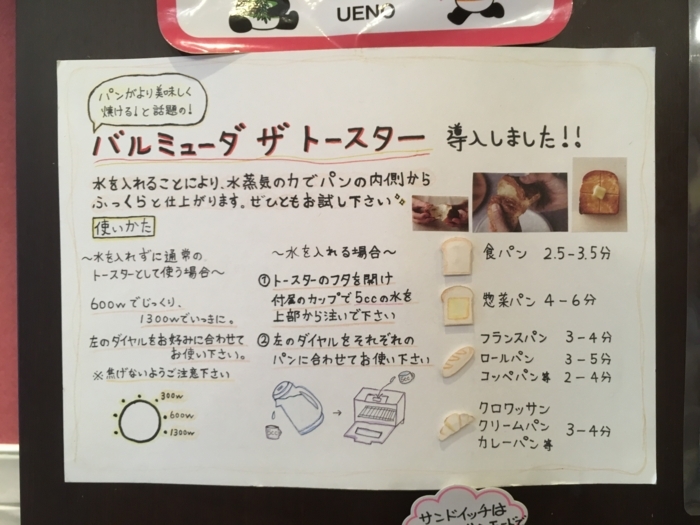 UENO
パンがより美味しく
焼ける!と話題の!
バルミューダ ザ トースター 導入しました!!
水を入れることにより、水蒸気の力でパンの内側から
ふっくらと仕上がります。ぜひともお試し下さい
使いかた
〜水を入れずに通常の
トースターとして使う場合〜
600wでじっくり、
1300wでいっきに。
左のダイヤルをお好みに合わせて
お使い下さい。
※焦げないようご注意下さい
300w
600w
1300w
〜水を入れる場合〜
①トースターのフタを開け
付属のカップで5ccの水を
上部から注いで下さい
②左のダイヤルをそれぞれの
パンに合わせてお使い下さい
5cc
食パン 2.5-3.5分
惣菜パン 4-6分
フランスパン 3-4分
ロールパン 3-5分
コッペパン等 2-4分
クロワッサン
クリームパン 3-4分
カレーパン等
サンドイッチは